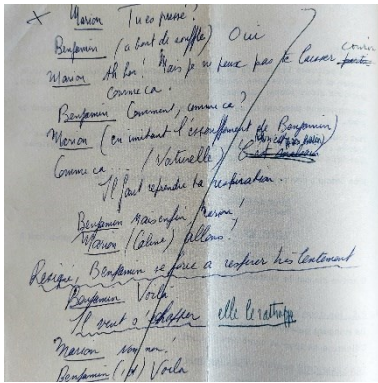 x Marion Tu es pressé !
Benjamin (a bout de souffle) Oui
Marion Ah bon ! Mais je ne peux pas te laisser courir
comme ca.
Benjamin Comment, comme ca ?
Marion (en imitant l'essoufflement de Benjamin)
Comme ca... (Naturelle)
Il faut reprendre ta respiration.
Benjamin Mais enfin, Marion !
Marion (Caline) allons !
Résigné, Benjamin se force a respirer très lentement
Benjamin Voilà
Il veut s'échapper elle le rattrape
Marion non non !
Benjamin Voilà